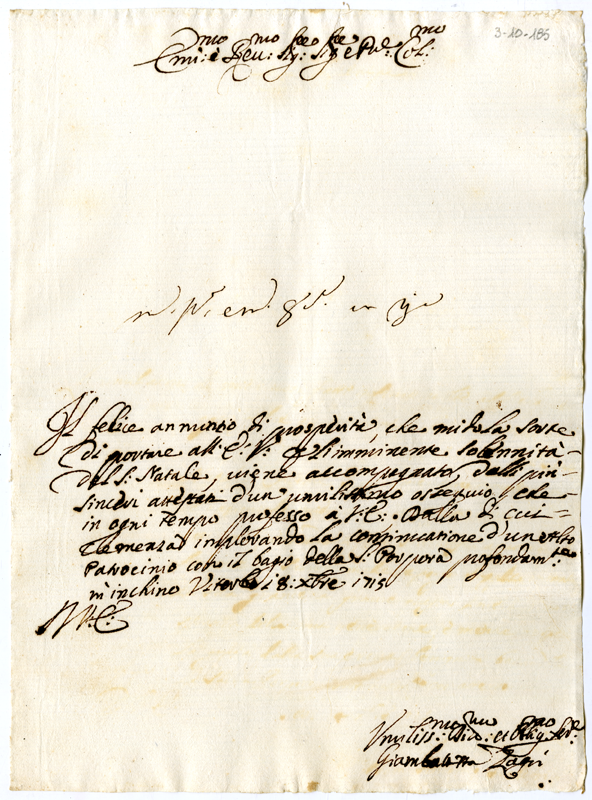 3-10-185
Em:mo è Reu:mo Sig:re Sig:re e Pne: Col:mo
Il felice annunzio di prosperità, che mi dà la sorte
di portare all' E: V: nell'imminente solennità
del S: Natale, viene accompagnato dalli piu'
sinceri attestati d'un umilissimo ossequio, che
in ogni tempo professo à V: E: Dalla di cui
Clemenza implorando la continuatione d'un alto
Patrocinio con il bagio della S: Porpora profondam:te
m'inchino Viterbo 18: Xbre 1715
D V: E:
Vmiliss:mo Diu:mo et Oblig:mo Ser:
Giambattista Zagri